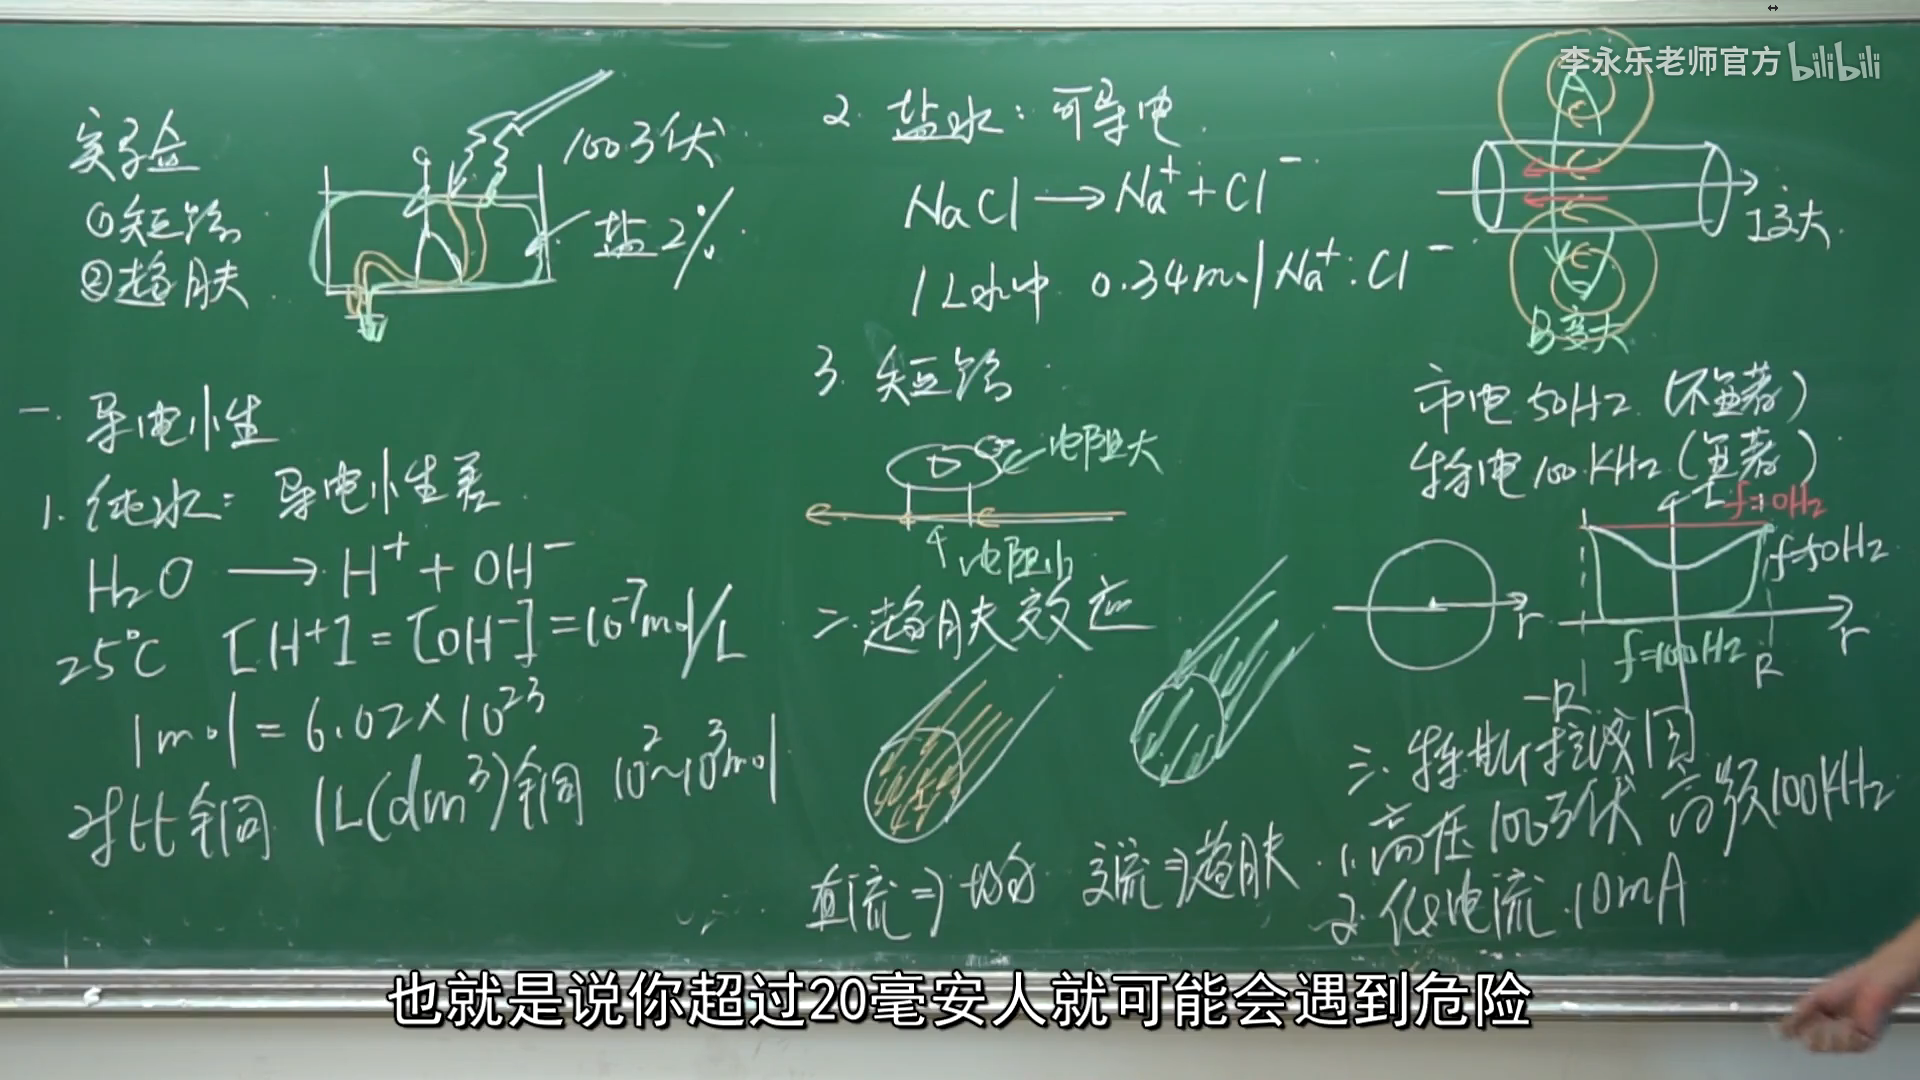 李永乐老师官方 bilibili
实验
①短路
②趋肤
100万伏
盐2%
一. 导电性
1. 纯水: 导电性差
H₂O → H⁺ + OH⁻
25℃ [H⁺] = [OH⁻] = 10⁻⁷mol/L
1mol = 6.02×10²³
对比铜 1L(dm³)铜 10²~10³mol
2. 盐水: 可导电
NaCl → Na⁺ + Cl⁻
1L水中 0.34mol Na⁺. Cl⁻
3. 短路
电阻大
电阻小
二. 趋肤效应
直流⇒均匀 交流⇒趋肤
I变大
B变大
市电 50Hz (不显著)
特电 100KHz (显著)
I f=0Hz
f=50Hz
r
r
f=100Hz R
-R
三. 特斯拉线圈
1. 高压100万伏 高频100KHz
2. 低电流 10mA
也就是说你超过20毫安人就可能会遇到危险